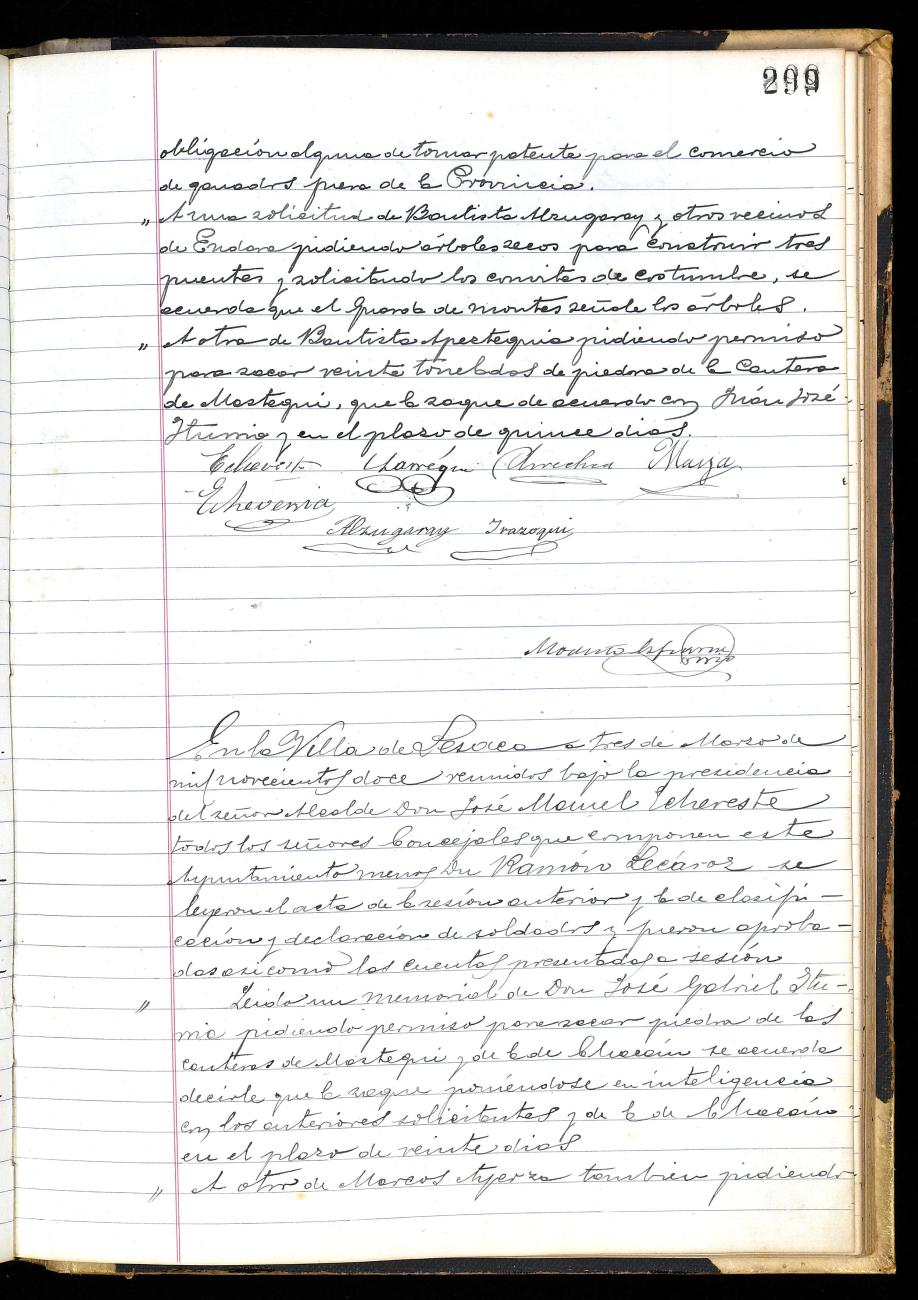 299
obligación alguna de tomar patente para el comercio
de ganados fuera de la Provincia.
„ A una solicitud de Bautista Alzugaray y otros vecinos
de Endara pidiendo árboles secos para construir tres
puentes y solicitando los convites de costumbre, se
acuerda que el Guarda de montes señale los árboles.
„ A otra de Bautista Apezteguia pidiendo permiso
para sacar veinte toneladas de piedra de la Cantera
de Mastegui, que la saque de acuerdo con Juán José
Iturria y en el plazo de quince dias.
Echeverria
Alzugaray Irazoqui
Modesto
En la Villa de Lesaca a tres de Marzo de
mil novecientos doce reunidos bajo la presidencia
del señor Alcalde Don José Manuel Echeveste
todos los señores Concejales que componen este
Ayuntamiento menos Dn Ramón Lecároz se
leyeron el acta de la sesión anterior y la de clasifi-
cación y declaración de soldados y fueron aproba-
das asi como las cuentas presentadas a sesión
„ Leido un memorial de Don José Gabriel Itu-
rria pidiendo permiso para sacar piedra de las
canteras de Mastegui y de la de Chacáin se acuerda
decirle que la saque poniéndose en inteligencia
con los anteriores solicitantes y de la de Chacáin
en el plazo de veinte dias
„ A otro de Marcos Ayerza tambien pidiendo